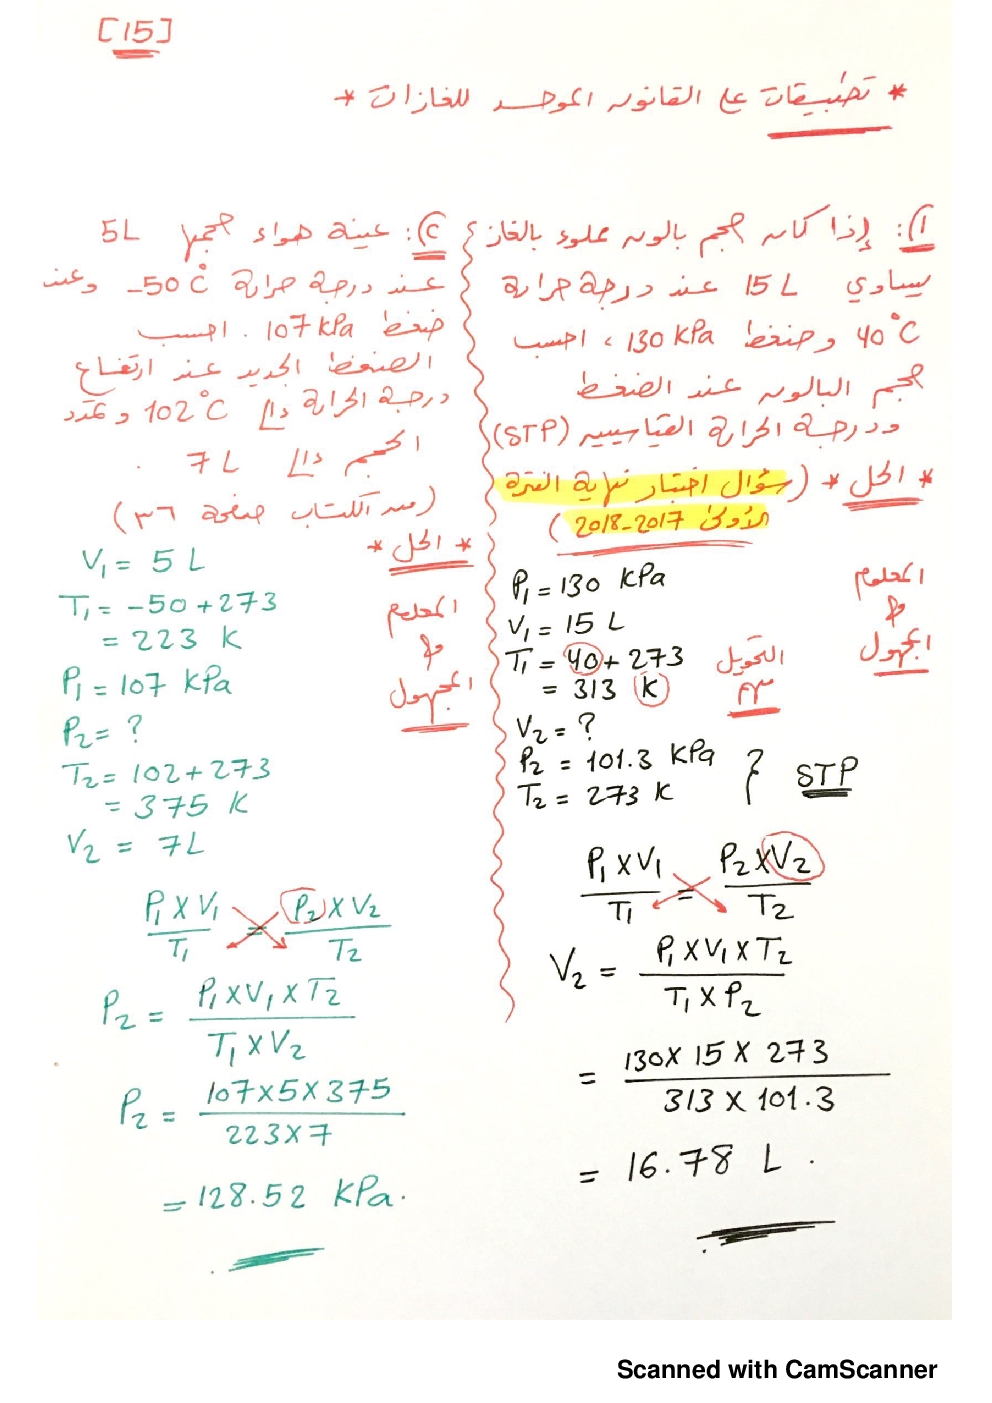 [15]
* تطبيقات على القانون الموحد للغازات *
١): إذا كان حجم بالون مملوء بالغاز
يساوي 15 L عند درجة حرارة
40°C وضغط 130 kPa ، احسب
حجم البالون عند الضغط
ودرجة الحرارة القياسيين (STP)
* الحل * (سؤال اختبار نهاية الفترة
الأولى 2017-2018)
المعلوم
و
المجهول
P₁ = 130 kPa
V₁ = 15 L
T₁ = 40 + 273
= 313 K
التحويل
V₂ = ?
P₂ = 101.3 kPa
T₂ = 273 K
} STP
P₁ × V₁ / T₁ = P₂ × V₂ / T₂
V₂ = P₁ × V₁ × T₂ / T₁ × P₂
= 130 × 15 × 273 / 313 × 101.3
= 16.78 L .
٢): عينة هواء حجمها 5L
عند درجة حرارة -50°C وعند
ضغط 107 kPa . احسب
الضغط الجديد عند ارتفاع
درجة الحرارة إلى 102°C وتمدد
الحجم إلى 7 L .
(من الكتاب صفحة ٣٦)
* الحل *
المعلوم
و
المجهول
V₁ = 5 L
T₁ = -50 + 273
= 223 K
P₁ = 107 kPa
P₂ = ?
T₂ = 102 + 273
= 375 K
V₂ = 7L
P₁ × V₁ / T₁ = P₂ × V₂ / T₂
P₂ = P₁ × V₁ × T₂ / T₁ × V₂
P₂ = 107 × 5 × 375 / 223 × 7
= 128.52 kPa.
Scanned with CamScanner